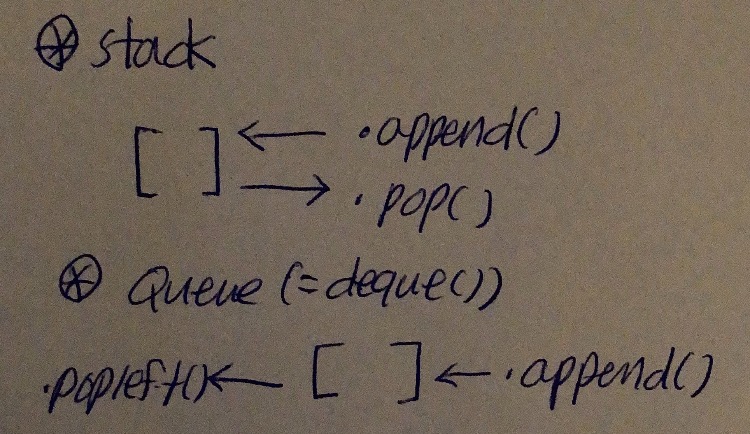 ⊛ stack
[ ] ← .append()
→ .pop()
⊛ Queue (=deque())
.popleft() ← [ ] ← .append()